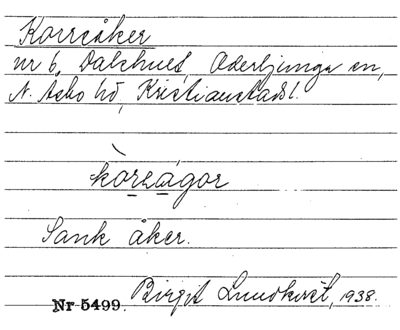 Korrsåker
nr 6, Dalshult, Oderljunga sn,
N. Åsbo hd, Kristianstads l.
kòrsågor
Sank åker.
Nr 5499. Birgit Lundkvist, 1938.